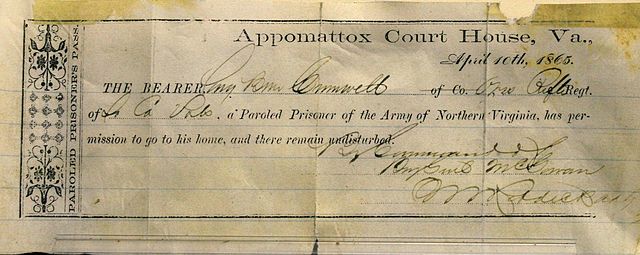 PAROLED PRISONER'S PASS.
Appomattox Court House, Va.,
April 10th, 1865.
THE BEARER, Benj Cromwell of Co. Regt.
of So Ca Vols, a Paroled Prisoner of the Army of Northern Virginia, has per-
mission to go to his home, and there remain undisturbed.
By Command of
Brig Genl McGowan